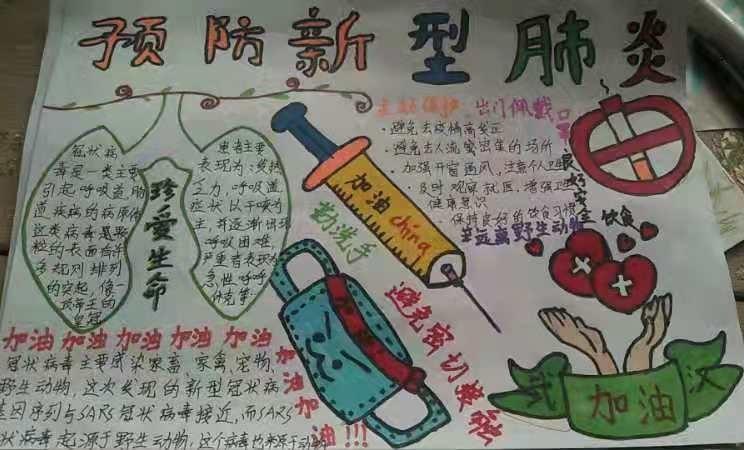 预防新型肺炎
冠状病
毒是一类主要
引起呼吸道肠
道疾病的病原体
这类病毒是颗
粒的表面有许
多规则排列
的突起，像一
顶帝王的
皇冠
珍爱生命
患者主要
表现为：发热
乏力，呼吸道
症状以干咳为
主，并逐渐出现
呼吸困难，
严重者表现为
急性呼吸
加油
china
勤洗手
出门佩戴口罩
·避免去疫情高发区
·避免去人流密密集的场所
·加强开窗通风，注意个人卫生
·及时观察就医，增强卫生
健康意识
·保持良好的饮食习惯
远离野生动物
避免密切接触
武汉
加油
加油 加油 加油 加油 加油
加油加油!!!
冠状病毒主要感染家畜、家禽、宠物、
野生动物，这次发现的新型冠状病
基因序列与SARS冠状病毒接近，而SARS
状病毒起源于野生动物，这个病毒也来源于动物